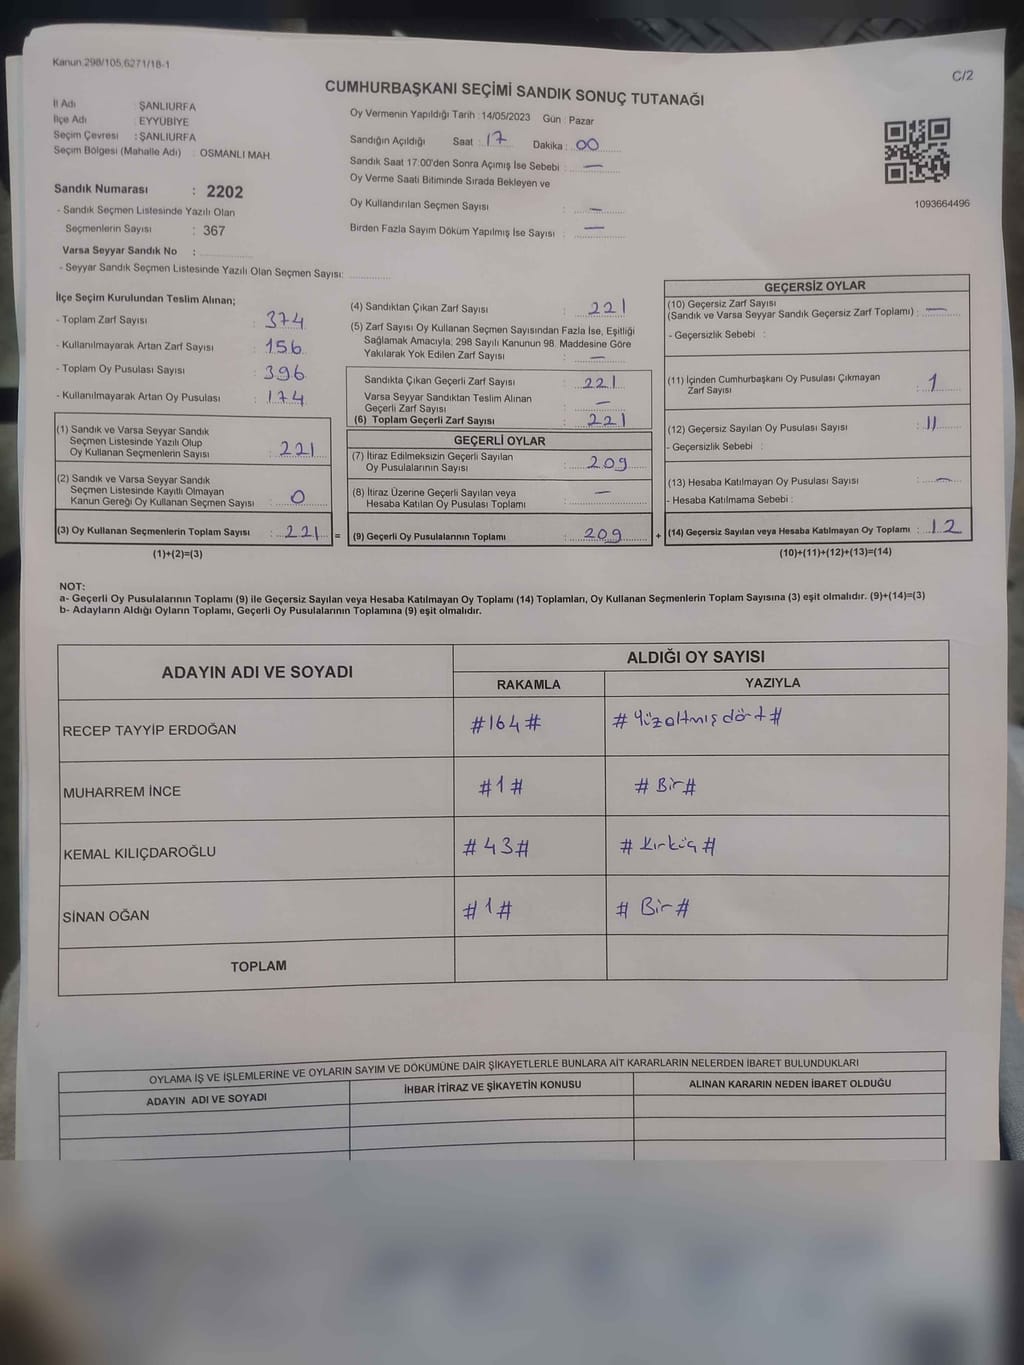 Kanun.298/105,6271/18-1
C/2
CUMHURBAŞKANI SEÇİMİ SANDIK SONUÇ TUTANAĞI
İl Adı : ŞANLIURFA
İlçe Adı : EYYÜBİYE
Seçim Çevresi : ŞANLIURFA
Seçim Bölgesi (Mahalle Adı) : OSMANLI MAH
Sandık Numarası : 2202
- Sandık Seçmen Listesinde Yazılı Olan
Seçmenlerin Sayısı : 367
Varsa Seyyar Sandık No :
- Seyyar Sandık Seçmen Listesinde Yazılı Olan Seçmen Sayısı:
Oy Vermenin Yapıldığı Tarih : 14/05/2023 Gün : Pazar
Sandığın Açıldığı Saat : 17 Dakika : 00
Sandık Saat 17:00'den Sonra Açımış İse Sebebi : —
Oy Verme Saati Bitiminde Sırada Bekleyen ve
Oy Kullandırılan Seçmen Sayısı : —
Birden Fazla Sayım Döküm Yapılmış İse Sayısı : —
1093664496
İlçe Seçim Kurulundan Teslim Alınan;
- Toplam Zarf Sayısı : 374
- Kullanılmayarak Artan Zarf Sayısı : 156
- Toplam Oy Pusulası Sayısı : 396
- Kullanılmayarak Artan Oy Pusulası : 174
(1) Sandık ve Varsa Seyyar Sandık
Seçmen Listesinde Yazılı Olup
Oy Kullanan Seçmenlerin Sayısı : 221
(2) Sandık ve Varsa Seyyar Sandık
Seçmen Listesinde Kayıtlı Olmayan
Kanun Gereği Oy Kullanan Seçmen Sayısı : 0
(3) Oy Kullanan Seçmenlerin Toplam Sayısı : 221 =
(1)+(2)=(3)
(4) Sandıktan Çıkan Zarf Sayısı : 221
(5) Zarf Sayısı Oy Kullanan Seçmen Sayısından Fazla İse, Eşitliği
Sağlamak Amacıyla, 298 Sayılı Kanunun 98. Maddesine Göre
Yakılarak Yok Edilen Zarf Sayısı : —
Sandıkta Çıkan Geçerli Zarf Sayısı : 221
Varsa Seyyar Sandıktan Teslim Alınan
Geçerli Zarf Sayısı : —
(6) Toplam Geçerli Zarf Sayısı : 221
GEÇERLİ OYLAR
(7) İtiraz Edilmeksizin Geçerli Sayılan
Oy Pusulalarının Sayısı : 209
(8) İtiraz Üzerine Geçerli Sayılan veya
Hesaba Katılan Oy Pusulası Toplamı : —
(9) Geçerli Oy Pusulalarının Toplamı : 209 +
GEÇERSİZ OYLAR
(10) Geçersiz Zarf Sayısı
(Sandık ve Varsa Seyyar Sandık Geçersiz Zarf Toplamı) : —
- Geçersizlik Sebebi :
(11) İçinden Cumhurbaşkanı Oy Pusulası Çıkmayan
Zarf Sayısı : 1
(12) Geçersiz Sayılan Oy Pusulası Sayısı : 11
- Geçersizlik Sebebi :
(13) Hesaba Katılmayan Oy Pusulası Sayısı : —
- Hesaba Katılmama Sebebi :
(14) Geçersiz Sayılan veya Hesaba Katılmayan Oy Toplamı : 12
(10)+(11)+(12)+(13)=(14)
NOT:
a- Geçerli Oy Pusulalarının Toplamı (9) ile Geçersiz Sayılan veya Hesaba Katılmayan Oy Toplamı (14) Toplamları, Oy Kullanan Seçmenlerin Toplam Sayısına (3) eşit olmalıdır. (9)+(14)=(3)
b- Adayların Aldığı Oyların Toplamı, Geçerli Oy Pusulalarının Toplamına (9) eşit olmalıdır.
ADAYIN ADI VE SOYADI
ALDIĞI OY SAYISI
RAKAMLA YAZIYLA
RECEP TAYYİP ERDOĞAN #164# #Yüzaltmışdört#
MUHARREM İNCE #1# #Bir#
KEMAL KILIÇDAROĞLU #43# #Kırküç#
SİNAN OĞAN #1# #Bir#
TOPLAM
OYLAMA İŞ VE İŞLEMLERİNE VE OYLARIN SAYIM VE DÖKÜMÜNE DAİR ŞİKAYETLERLE BUNLARA AİT KARARLARIN NELERDEN İBARET BULUNDUKLARI
ADAYIN ADI VE SOYADI İHBAR İTİRAZ VE ŞİKAYETİN KONUSU ALINAN KARARIN NEDEN İBARET OLDUĞU